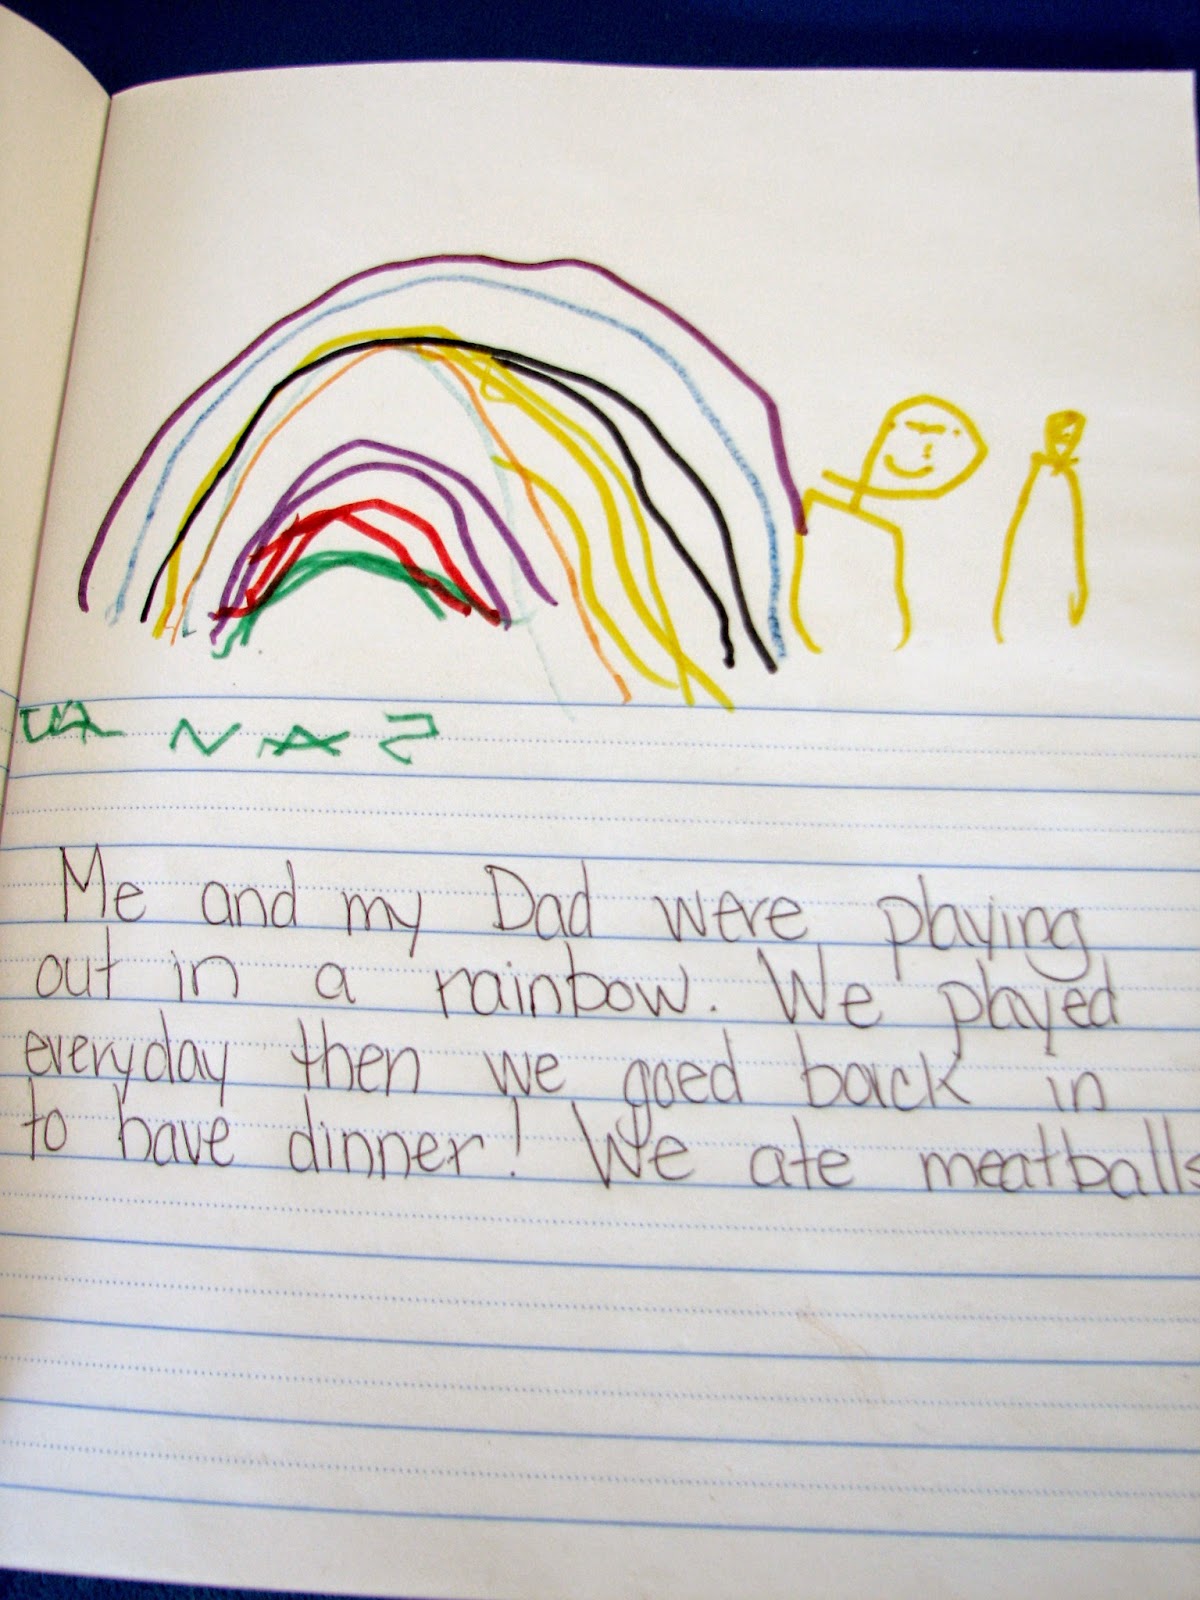 Me and my Dad were playing
out in a rainbow. We played
everyday then we goed back in
to have dinner! We ate meatballs